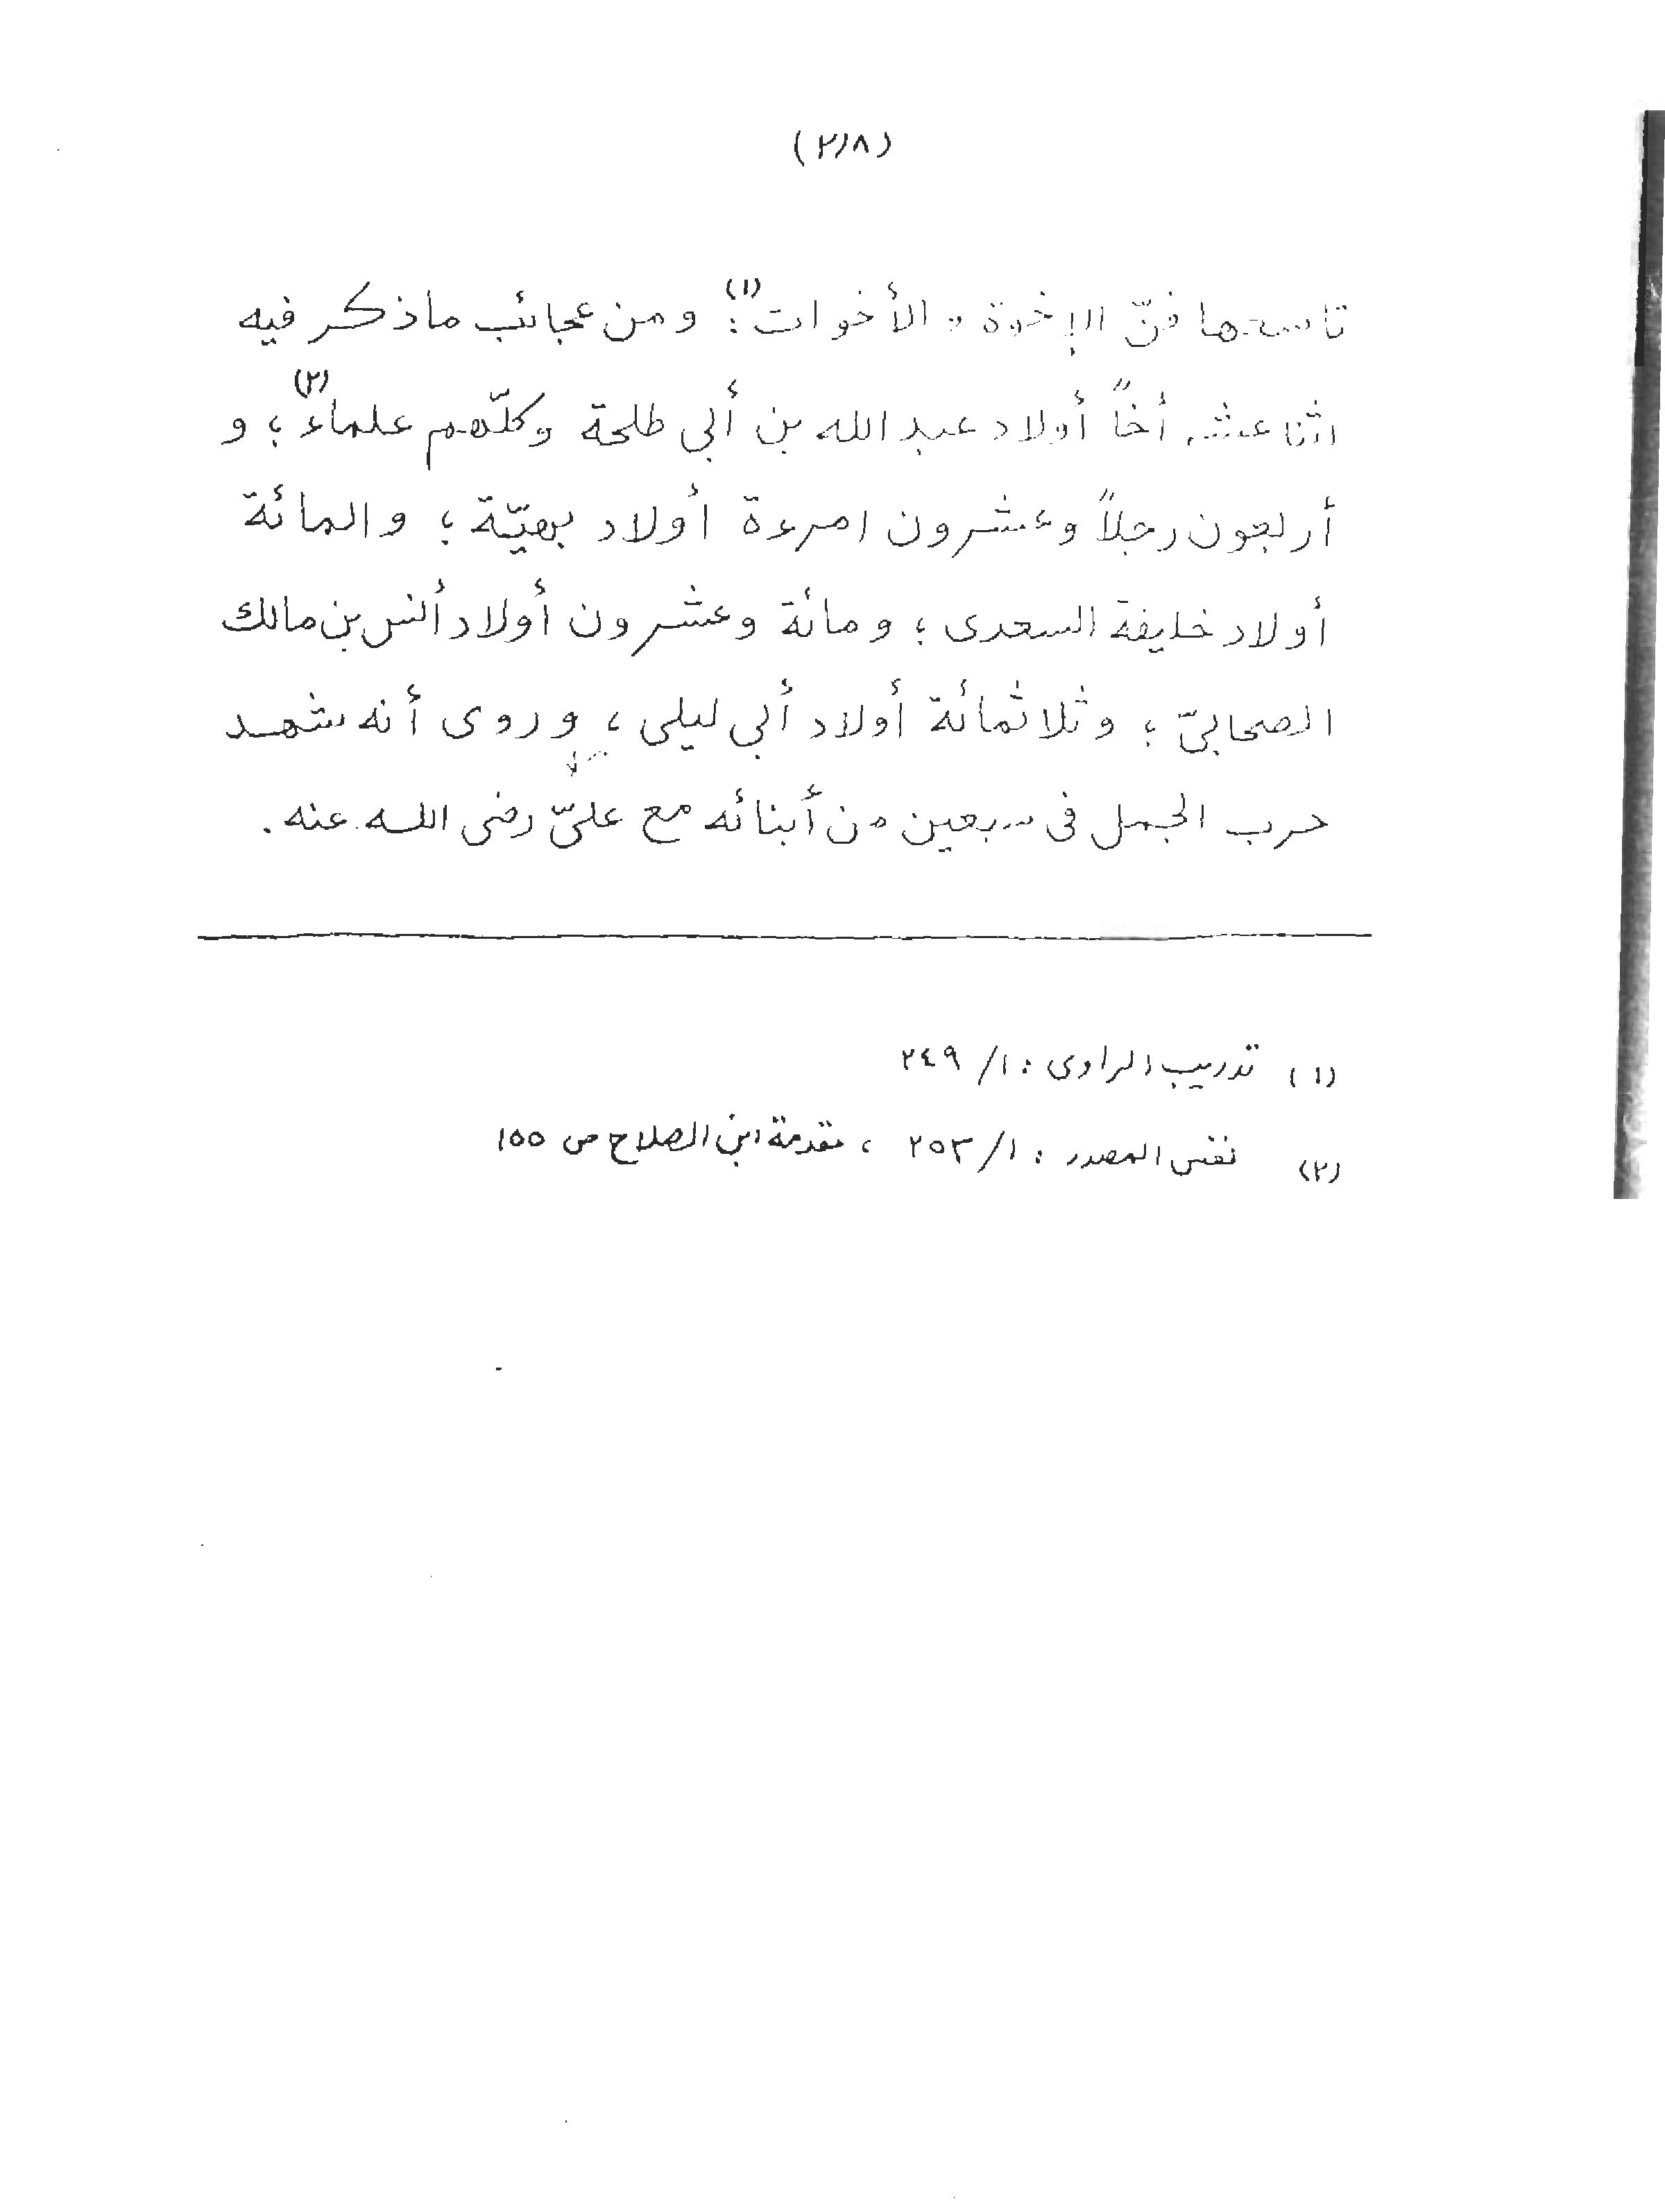 (٢١٨)
تاسعها فنّ الإخوة و الأخوات(١): ومن عجائب ماذكر فيه
اثنا عشر أخاً أولاد عبد الله بن أبي طلحة وكلّهم علماء(٢)؛ و
أربعون رجلاً وعشرون امرءة أولاد بهيّة؛ والمائة
أولاد خليفة السعدى؛ ومائة وعشرون أولاد أنس بن مالك
الصحابيّ؛ وثلاثمائة أولاد أبي ليلى، وروى أنه شهد
حرب الجمل فى سبعين من أبنائه مع عليّ رضى الله عنه.
(١) تدريب الراوى: ١/ ٢٤٩
(٢) نفس المصدر: ١/ ٢٥٣ ، مقدمة ابن الصلاح ص ١٥٥